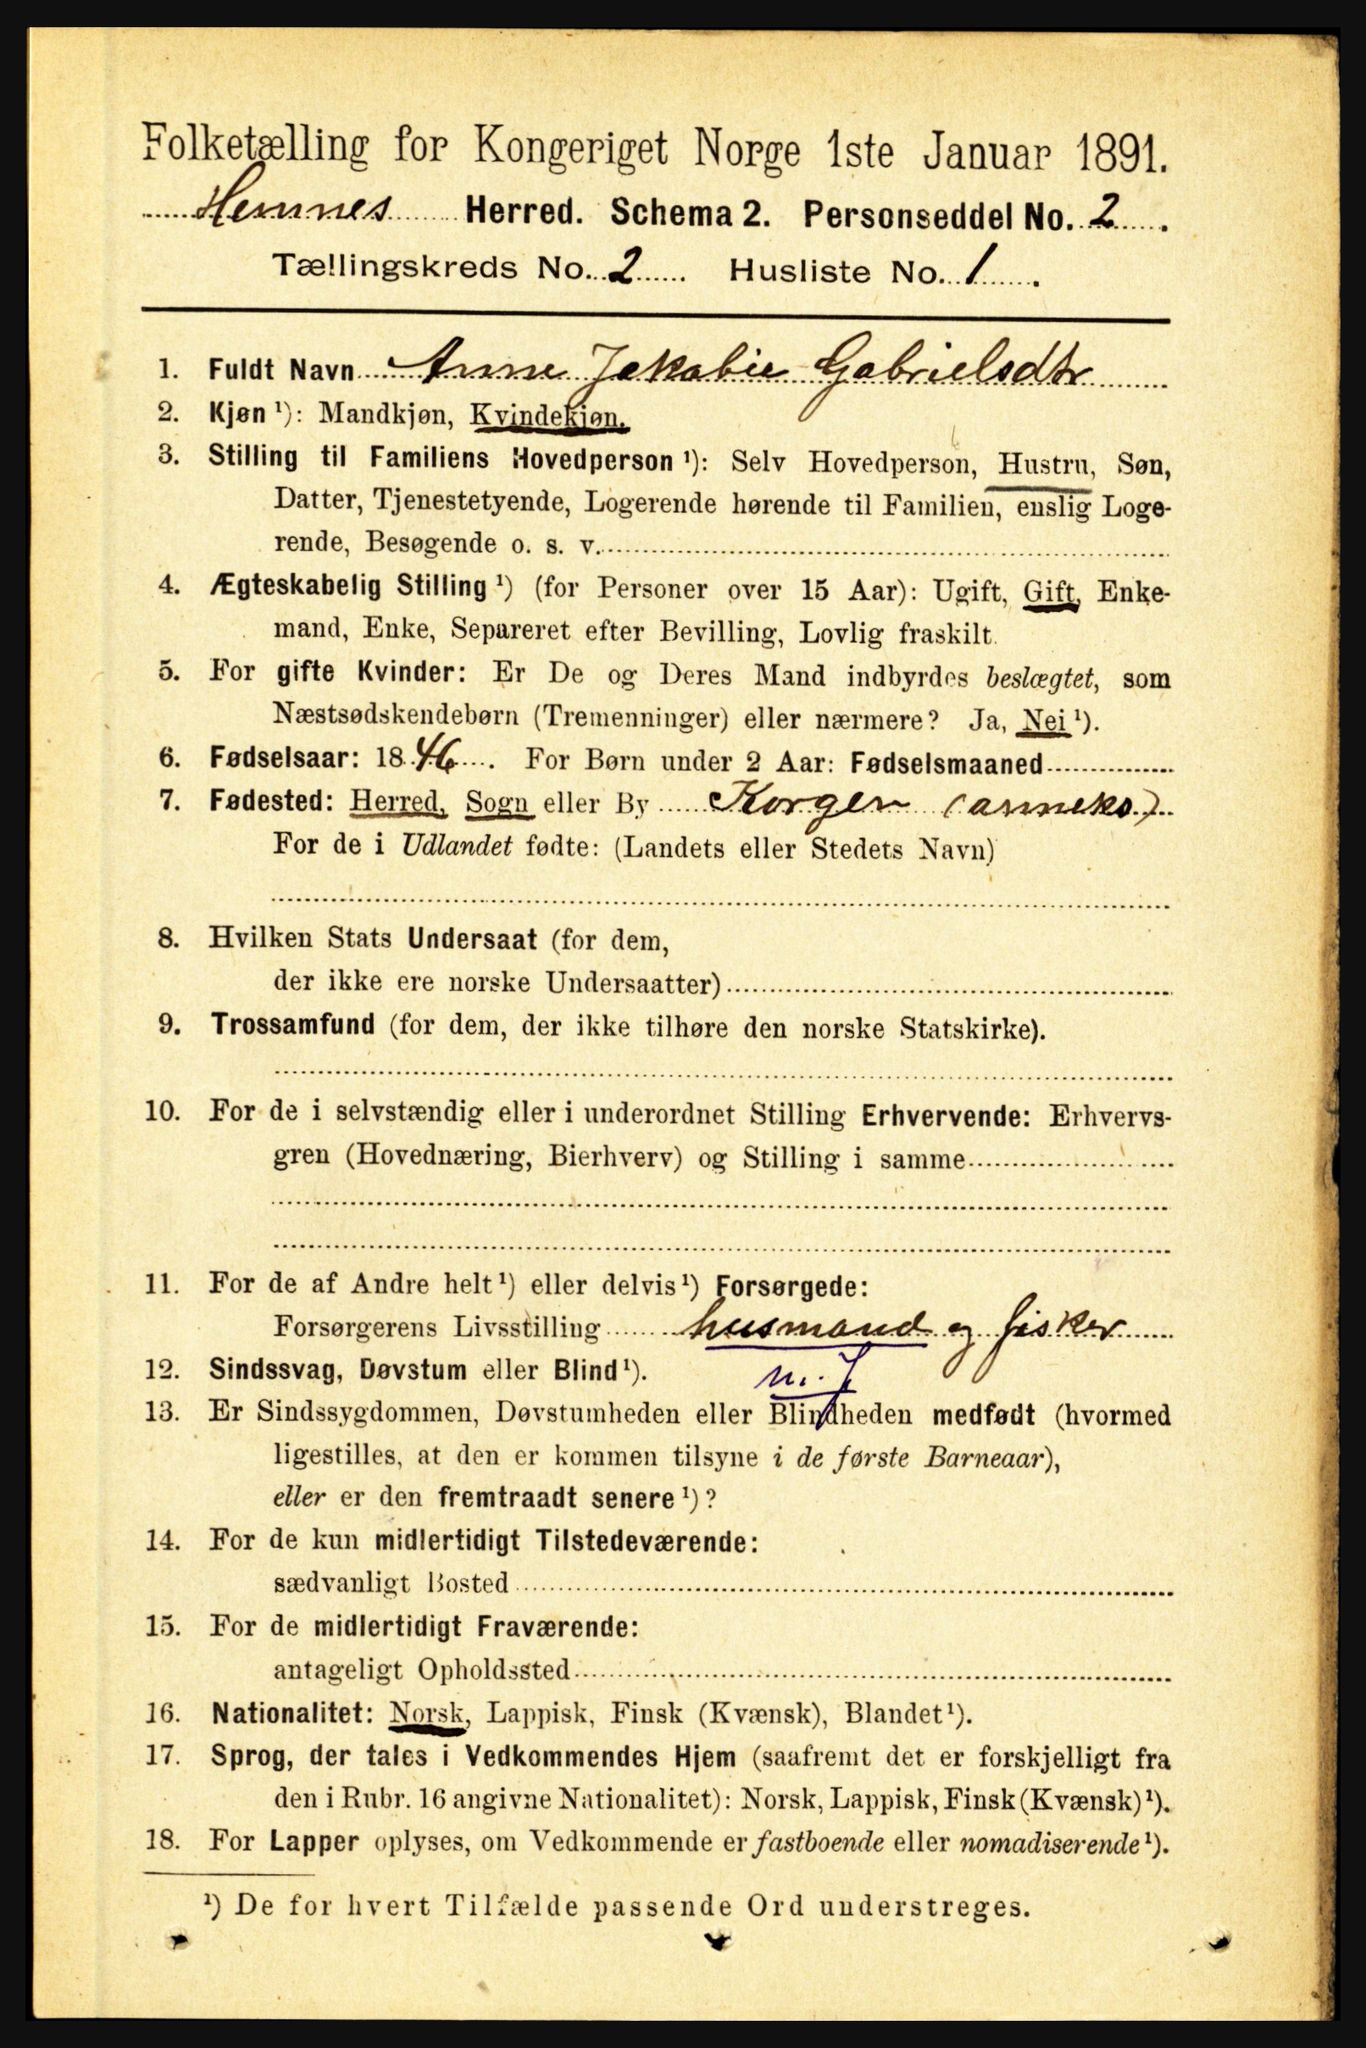 Folketælling for Kongeriget Norge 1ste Januar 1891.
Hemnes Herred. Schema 2. Personseddel No. 2.
Tællingskreds No. 2 Husliste No. 1.
1. Fuldt Navn Anne Jakobie Gabrielsdtr
2. Kjøn ¹): Mandkjøn, Kvindekjøn.
3. Stilling til Familiens Hovedperson ¹): Selv Hovedperson, Hustru, Søn,
Datter, Tjenestetyende, Logerende hørende til Familien, enslig Loge-
rende, Besøgende o. s. v.
4. Ægteskabelig Stilling ¹) (for Personer over 15 Aar): Ugift, Gift, Enke-
mand, Enke, Separeret efter Bevilling, Lovlig fraskilt.
5. For gifte Kvinder: Er De og Deres Mand indbyrdes beslægtet, som
Næstsødskendebørn (Tremenninger) eller nærmere? Ja, Nei ¹).
6. Fødselsaar: 1846. For Børn under 2 Aar: Fødselsmaaned
7. Fødested: Herred, Sogn eller By Korgen (anneks)
For de i Udlandet fødte: (Landets eller Stedets Navn)
8. Hvilken Stats Undersaat (for dem,
der ikke ere norske Undersaatter)
9. Trossamfund (for dem, der ikke tilhøre den norske Statskirke).
10. For de i selvstændig eller i underordnet Stilling Erhvervende: Erhvervs-
gren (Hovednæring, Bierhverv) og Stilling i samme
11. For de af Andre helt ¹) eller delvis ¹) Forsørgede:
Forsørgerens Livsstilling husmand og fisker
12. Sindssvag, Døvstum eller Blind ¹). m. J
13. Er Sindssygdommen, Døvstumheden eller Blindheden medfødt (hvormed
ligestilles, at den er kommen tilsyne i de første Barneaar),
eller er den fremtraadt senere ¹)?
14. For de kun midlertidigt Tilstedeværende:
sædvanligt Bosted
15. For de midlertidigt Fraværende:
antageligt Opholdssted
16. Nationalitet: Norsk, Lappisk, Finsk (Kvænsk), Blandet ¹).
17. Sprog, der tales i Vedkommendes Hjem (saafremt det er forskjelligt fra
den i Rubr. 16 angivne Nationalitet): Norsk, Lappisk, Finsk (Kvænsk) ¹).
18. For Lapper oplyses, om Vedkommende er fastboende eller nomadiserende ¹).
¹) De for hvert Tilfælde passende Ord understreges.